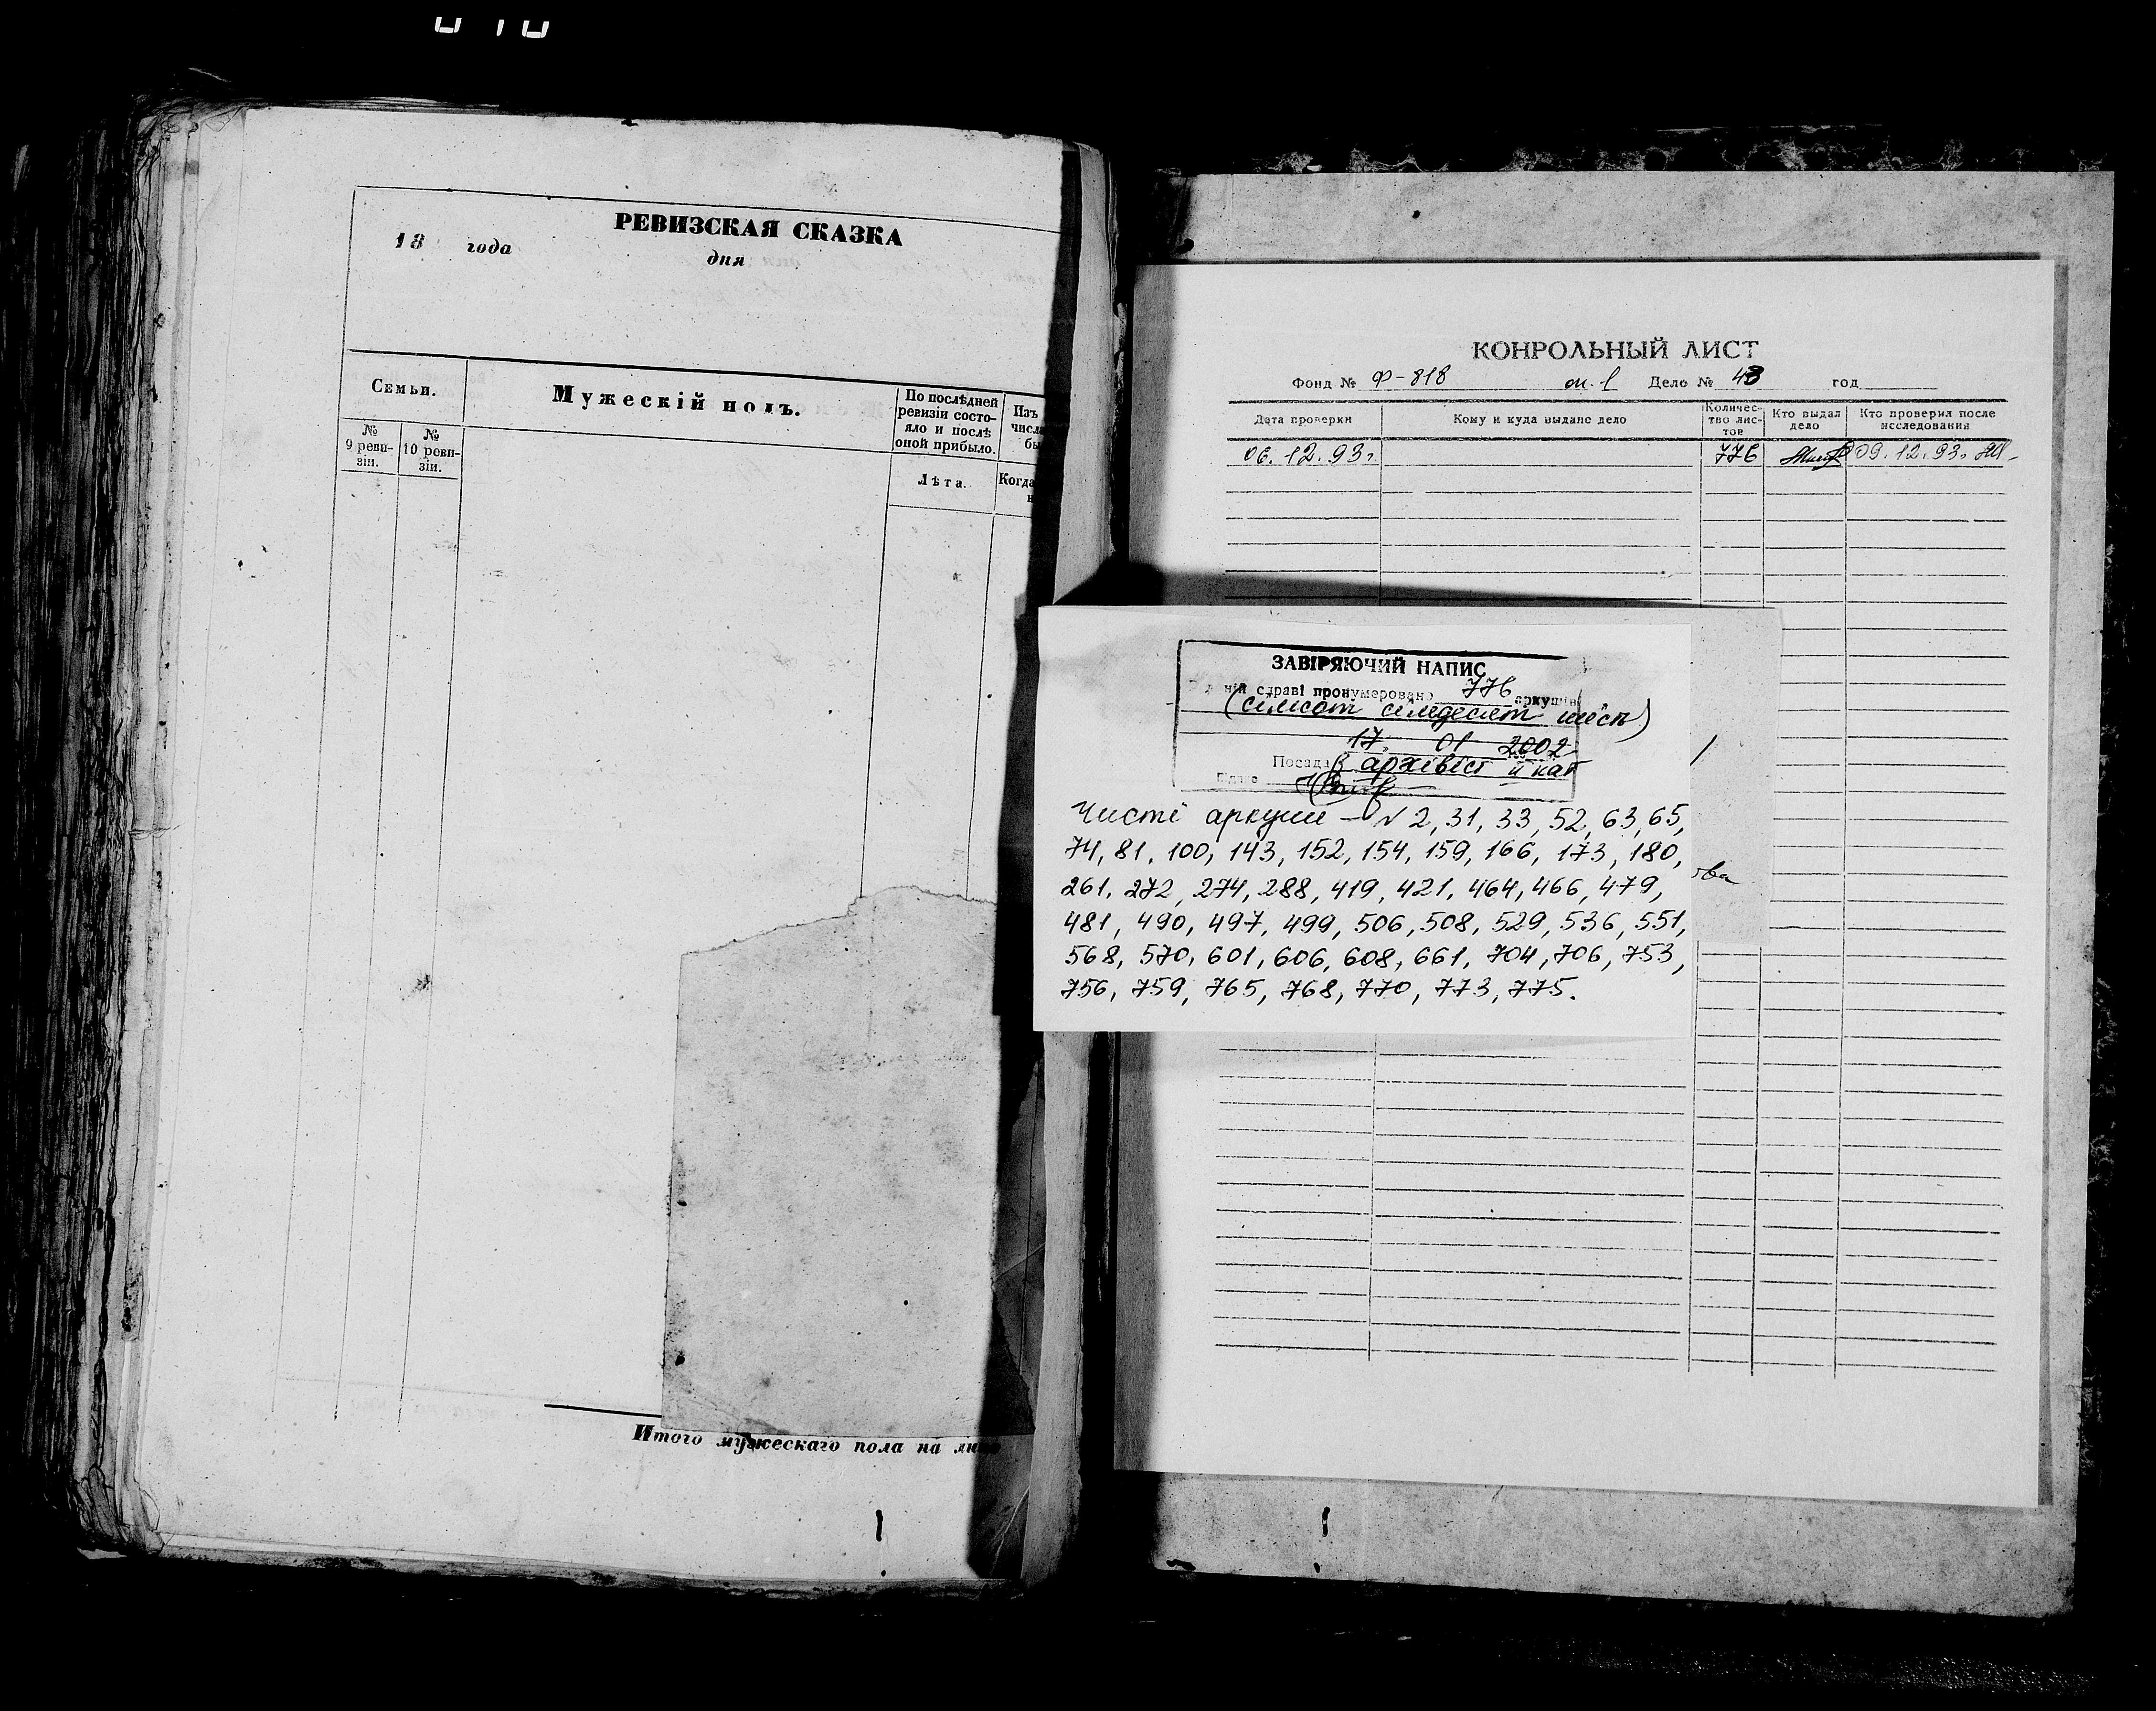 РЕВИЗСКАЯ СКАЗКА
18 года
дня
Семьи.
Мужескій полъ.
По послѣдней
ревизіи состо-
яло и послѣ
оной прибыло.
Изъ
числа
бы
№
9 реви-
зіи.
№
10 реви-
зіи.
Лѣта.
Когда
Итого мужескаго пола на
КОНРОЛЬНЫЙ ЛИСТ
Фонд № Ф-818 оп. 1 Дело № 43 год
Дата проверки
Кому и куда выдано дело
Количес-
тво лис-
тов
Кто выдал
дело
Кто проверил после
исследования
06.12.93г. 776 09.12.93г.
ЗАВІРЯЮЧИЙ НАПИС
справі пронумеровано 776 аркушів
(сімсот сімдесят шість)
17. 01 2002
Посада архівіст ІІ кат
Чисті аркуші – № 2, 31, 33, 52, 63, 65,
74, 81, 100, 143, 152, 154, 159, 166, 173, 180,
261, 272, 274, 288, 419, 421, 464, 466, 479,
481, 490, 497, 499, 506, 508, 529, 536, 551,
568, 570, 601, 606, 608, 661, 704, 706, 753,
756, 759, 765, 768, 770, 773, 775.
ова